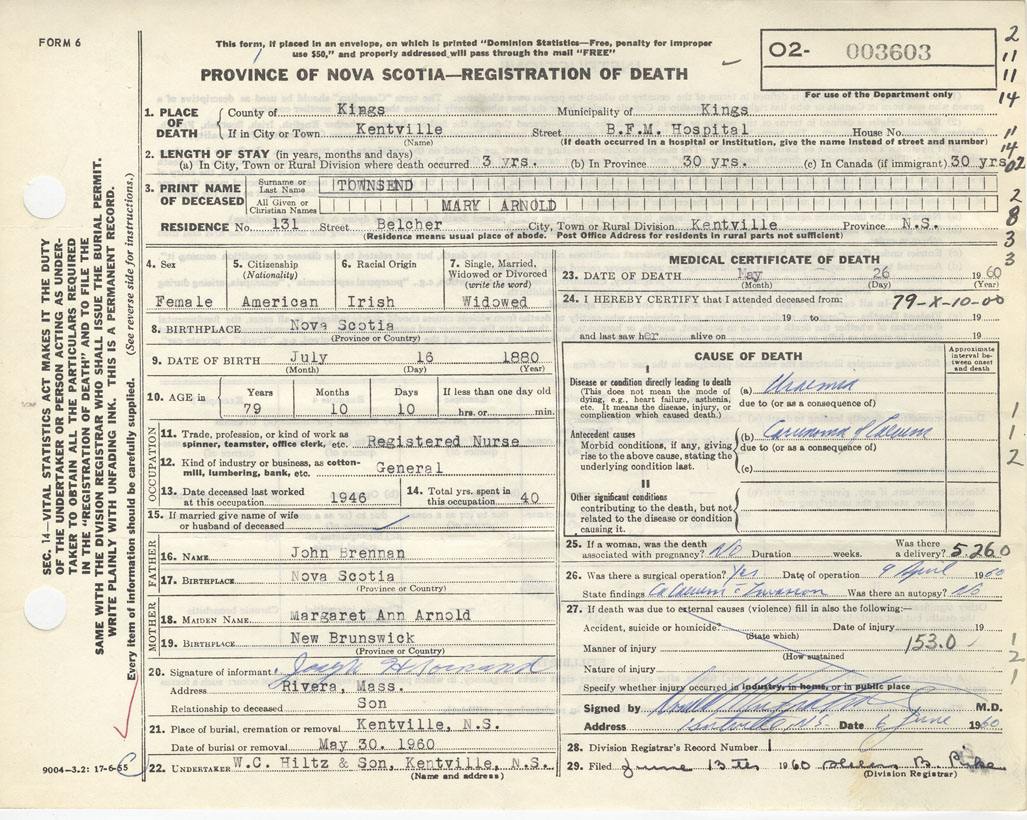 FORM 6
This form, if placed in an envelope, on which is printed "Dominion Statistics—Free, penalty for improper
use $50," and properly addressed will pass through the mail "FREE"
PROVINCE OF NOVA SCOTIA—REGISTRATION OF DEATH
O2- 003603
For use of the Department only
2
11
11
14
11
14
02
2
8
3
3
1. PLACE OF DEATH
County of Kings Municipality of Kings
If in City or Town Kentville Street B.F.M. Hospital House No.
(Name) (If death occurred in a hospital or institution, give the name instead of street and number)
2. LENGTH OF STAY (in years, months and days)
(a) In City, Town or Rural Division where death occurred 3 yrs. (b) In Province 30 yrs. (c) In Canada (if immigrant) 30 yrs
3. PRINT NAME OF DECEASED
Surname or Last Name TOWNSEND
All Given or Christian Names MARY ARNOLD
RESIDENCE No. 131 Street Belcher City, Town or Rural Division Kentville Province N.S.
(Residence means usual place of abode. Post Office Address for residents in rural parts not sufficient)
4. Sex
Female
5. Citizenship
(Nationality)
American
6. Racial Origin
Irish
7. Single, Married,
Widowed or Divorced
(write the word)
Widowed
8. BIRTHPLACE Nova Scotia
(Province or Country)
9. DATE OF BIRTH July 16 1880
(Month) (Day) (Year)
10. AGE in
Years Months Days If less than one day old
79 10 10 hrs. or min.
OCCUPATION
11. Trade, profession, or kind of work as
spinner, teamster, office clerk, etc. Registered Nurse
12. Kind of industry or business, as cotton-
mill, lumbering, bank, etc. General
13. Date deceased last worked
at this occupation 1946
14. Total yrs. spent in
this occupation 40
15. If married give name of wife
or husband of deceased
FATHER
16. NAME John Brennan
17. BIRTHPLACE Nova Scotia
(Province or Country)
MOTHER
18. MAIDEN NAME Margaret Ann Arnold
19. BIRTHPLACE New Brunswick
(Province or Country)
20. Signature of informant Joseph H.
Address Rivera, Mass.
Relationship to deceased Son
21. Place of burial, cremation or removal Kentville, N.S.
Date of burial or removal May 30. 1960
22. UNDERTAKER W.C. Hiltz & Son, Kentville, N.S.
(Name and address)
MEDICAL CERTIFICATE OF DEATH
23. DATE OF DEATH May 26 1960
(Month) (Day) (Year)
24. I HEREBY CERTIFY that I attended deceased from: 79-X-10-00
19 to 19
and last saw her alive on 19
CAUSE OF DEATH
Approximate
interval be-
tween onset
and death
I
Disease or condition directly leading to death
(This does not mean the mode of
dying, e.g., heart failure, asthenia,
etc. It means the disease, injury, or
complication which caused death.)
(a) Uraemia
due to (or as a consequence of)
Antecedent causes
Morbid conditions, if any, giving
rise to the above cause, stating the
underlying condition last.
(b) Carcinoma of Caecum
due to (or as a consequence of)
(c)
II
Other significant conditions
contributing to the death, but not
related to the disease or condition
causing it.
1
1
2
25. If a woman, was the death
associated with pregnancy? No Duration weeks.
Was there
a delivery? 5260
26. Was there a surgical operation? Yes Date of operation 9 April 1960
State findings Ca Caecum c Invasion Was there an autopsy? No
27. If death was due to external causes (violence) fill in also the following:—
Accident, suicide or homicide? Date of injury 19
(State which)
Manner of injury 153.0
(How sustained
Nature of injury
Specify whether injury occurred in industry, in home, or in public place
1
2
1
Signed by M.D.
Address Kentville, N.S. Date 6 June 1960
28. Division Registrar's Record Number 1
29. Filed June 13th 1960 B. Pike
(Division Registrar)
SEC. 14—VITAL STATISTICS ACT MAKES IT THE DUTY
OF THE UNDERTAKER OR PERSON ACTING AS UNDER-
TAKER TO OBTAIN ALL THE PARTICULARS REQUIRED
IN THE "REGISTRATION OF DEATH" AND TO FILE THE
SAME WITH THE DIVISION REGISTRAR WHO SHALL ISSUE THE BURIAL PERMIT.
WRITE PLAINLY WITH UNFADING INK. THIS IS A PERMANENT RECORD.
Every item of information should be carefully supplied. (See reverse side for instructions.)
9004-3.2: 17-6-55